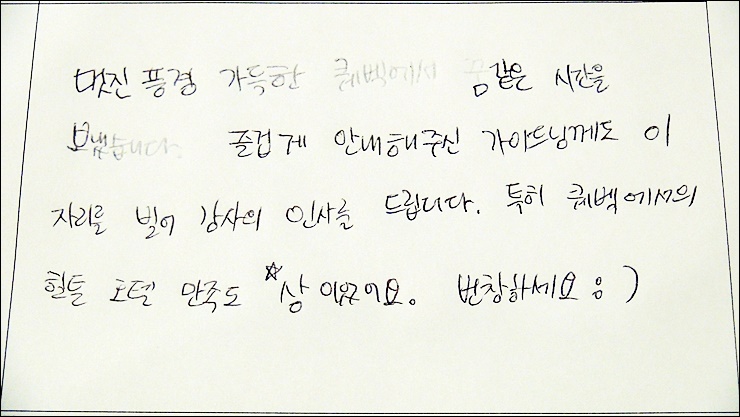 멋진 풍경 가득한 퀘벡에서 꿈같은 시간을
보냈습니다. 즐겁게 안내해주신 가이드님께도 이
자리를 빌어 감사의 인사를 드립니다. 특히 퀘벡에서의
힐튼 호텔 만족도 ☆상 이었어요. 번창하세요 :)